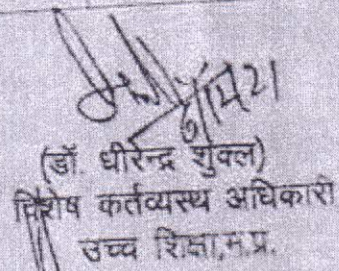 (डॉ. धीरेन्द्र शुक्ल)
विशेष कर्तव्यस्थ अधिकारी
उच्च शिक्षा,म.प्र.